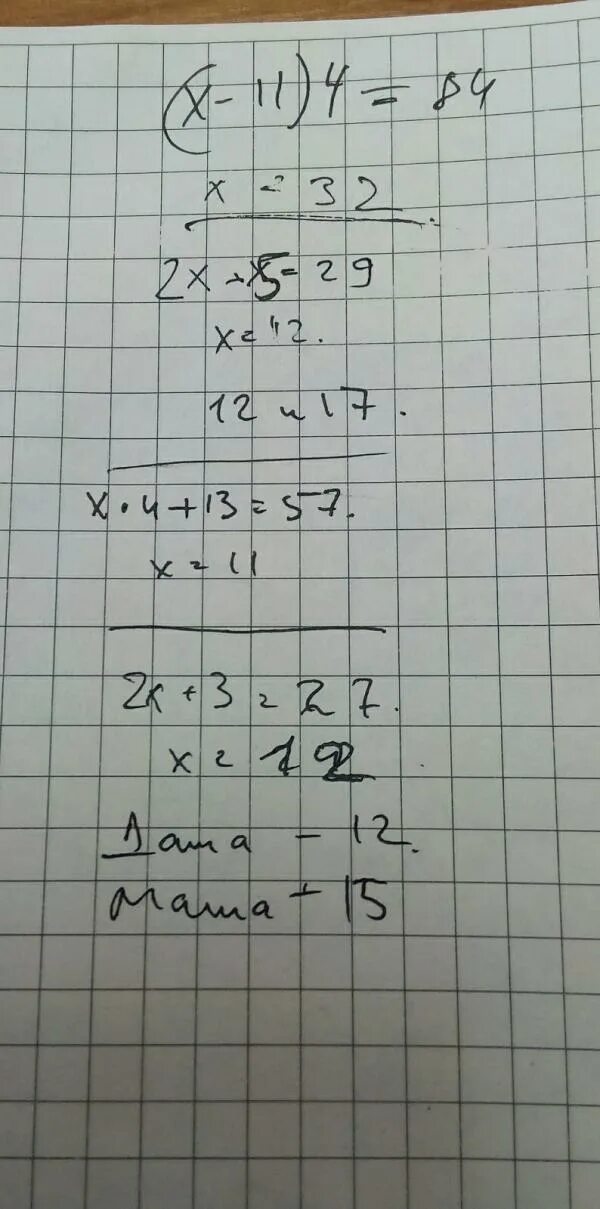 (x - 11) 4 = 84
x = 32
2x + 5 = 29
x = 12.
12 и 17.
x · 4 + 13 = 57.
x = 11
2x + 3 = 27.
x = 12
Даша - 12.
Маша - 15